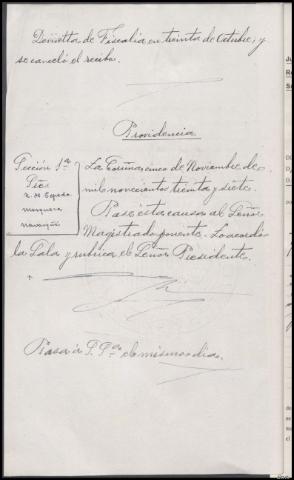 Devuelta de Fiscalia en treinta de Octubre; y
se canceló el recibo.
Providencia
Sección 1ª
La Coruña cinco de Noviembre de
mil novecientos treinta y siete.
Pase esta causa al Señor
Magistrado ponente. Lo acordó
la Sala y rubrica el Señor Presidente.
Pasa a el mismo dia.